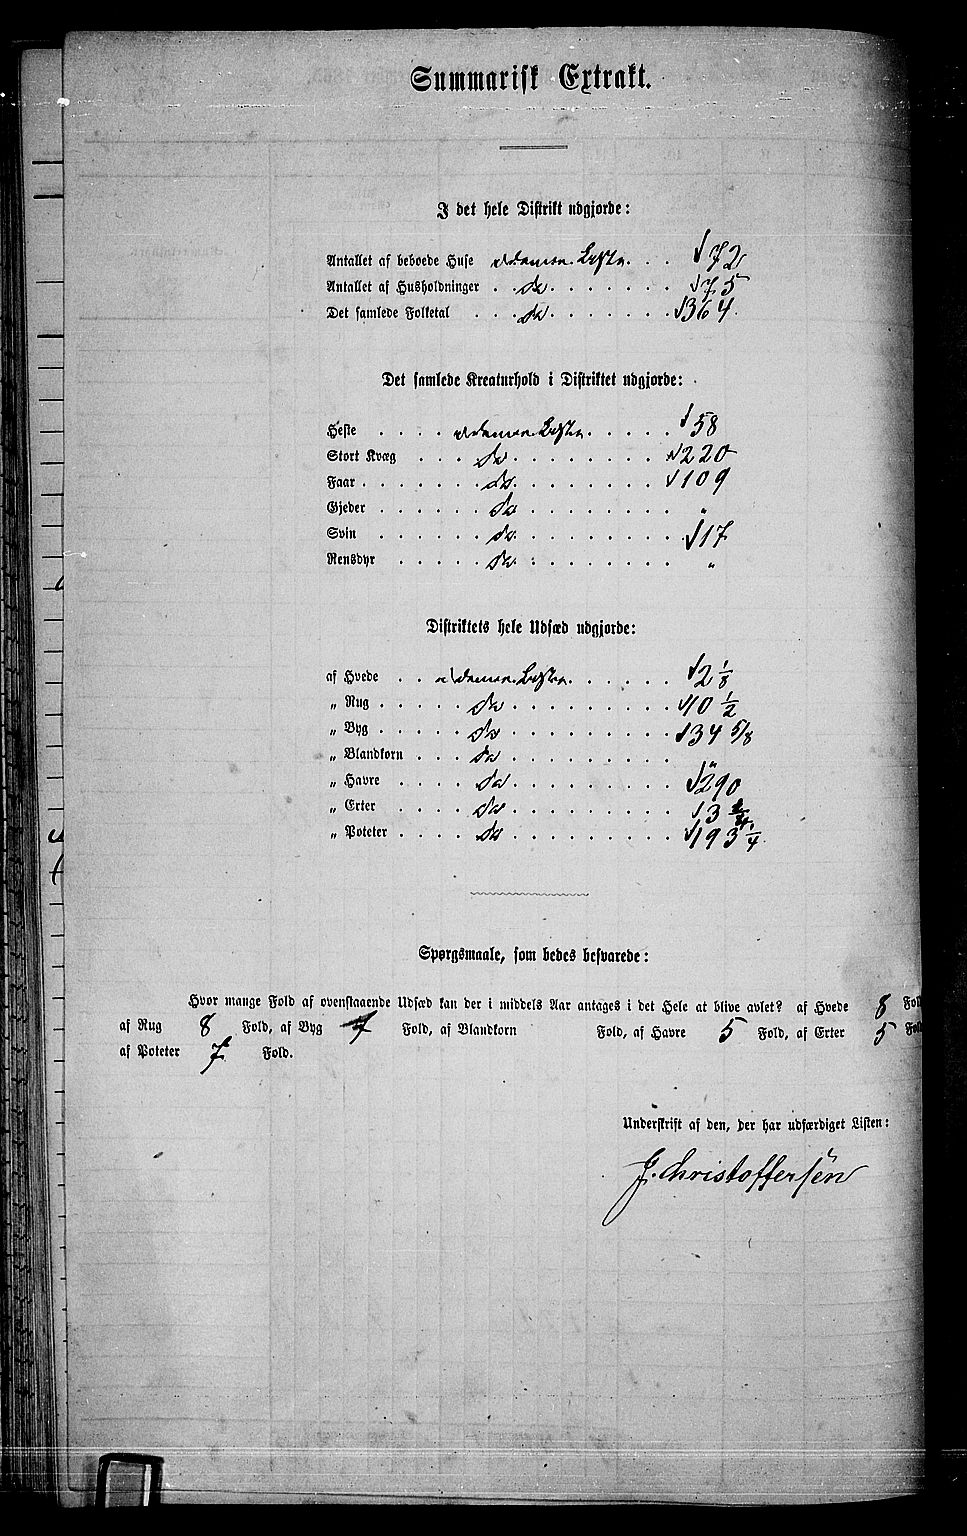 Summarisk Extrakt.
I det hele Distrikt udgjorde:
Antallet af beboede Huse . . . 72
Antallet af Husholdninger . . do . . . . . . . 75
Det samlede Folketal . . . do . . . . . . . 364
Det samlede Kreaturhold i Distriktet udgjorde:
Heste . . . . . . . . . 58
Stort Kvæg . . . . do . . . . . . . . 220
Faar . . . . . . do . . . . . . . . 109
Gjeder . . . . . do . . . . . . . . "
Svin . . . . . do . . . . . . . . 17
Rensdyr . . . . do . . . . . . . . "
Distriktets hele Udsæd udgjorde:
af Hvede . . . . . . . . 2 1/8
" Rug . . . . do . . . . . . . . 10 1/2
" Byg . . . . do . . . . . . . . 34 5/8
" Blandkorn . . . do . . . . . . . . "
" Havre . . . . do . . . . . . . . 290
" Erter . . . . do . . . . . . . . 3
" Poteter . . . . do . . . . . . . . 193 1/4
Spørgsmaale, som bedes besvarede:
Hvor mange Fold af ovenstaaende Udsæd kan der i middels Aar antages i det Hele at blive avlet? af Hvede 8 Fold
af Rug 8 Fold, af Byg 7 Fold, af Blandkorn Fold, af Havre 5 Fold, af Erter 5 Fold
af Poteter 7 Fold.
Underskrift af den, der har udfærdiget Listen:
J. Christoffersen